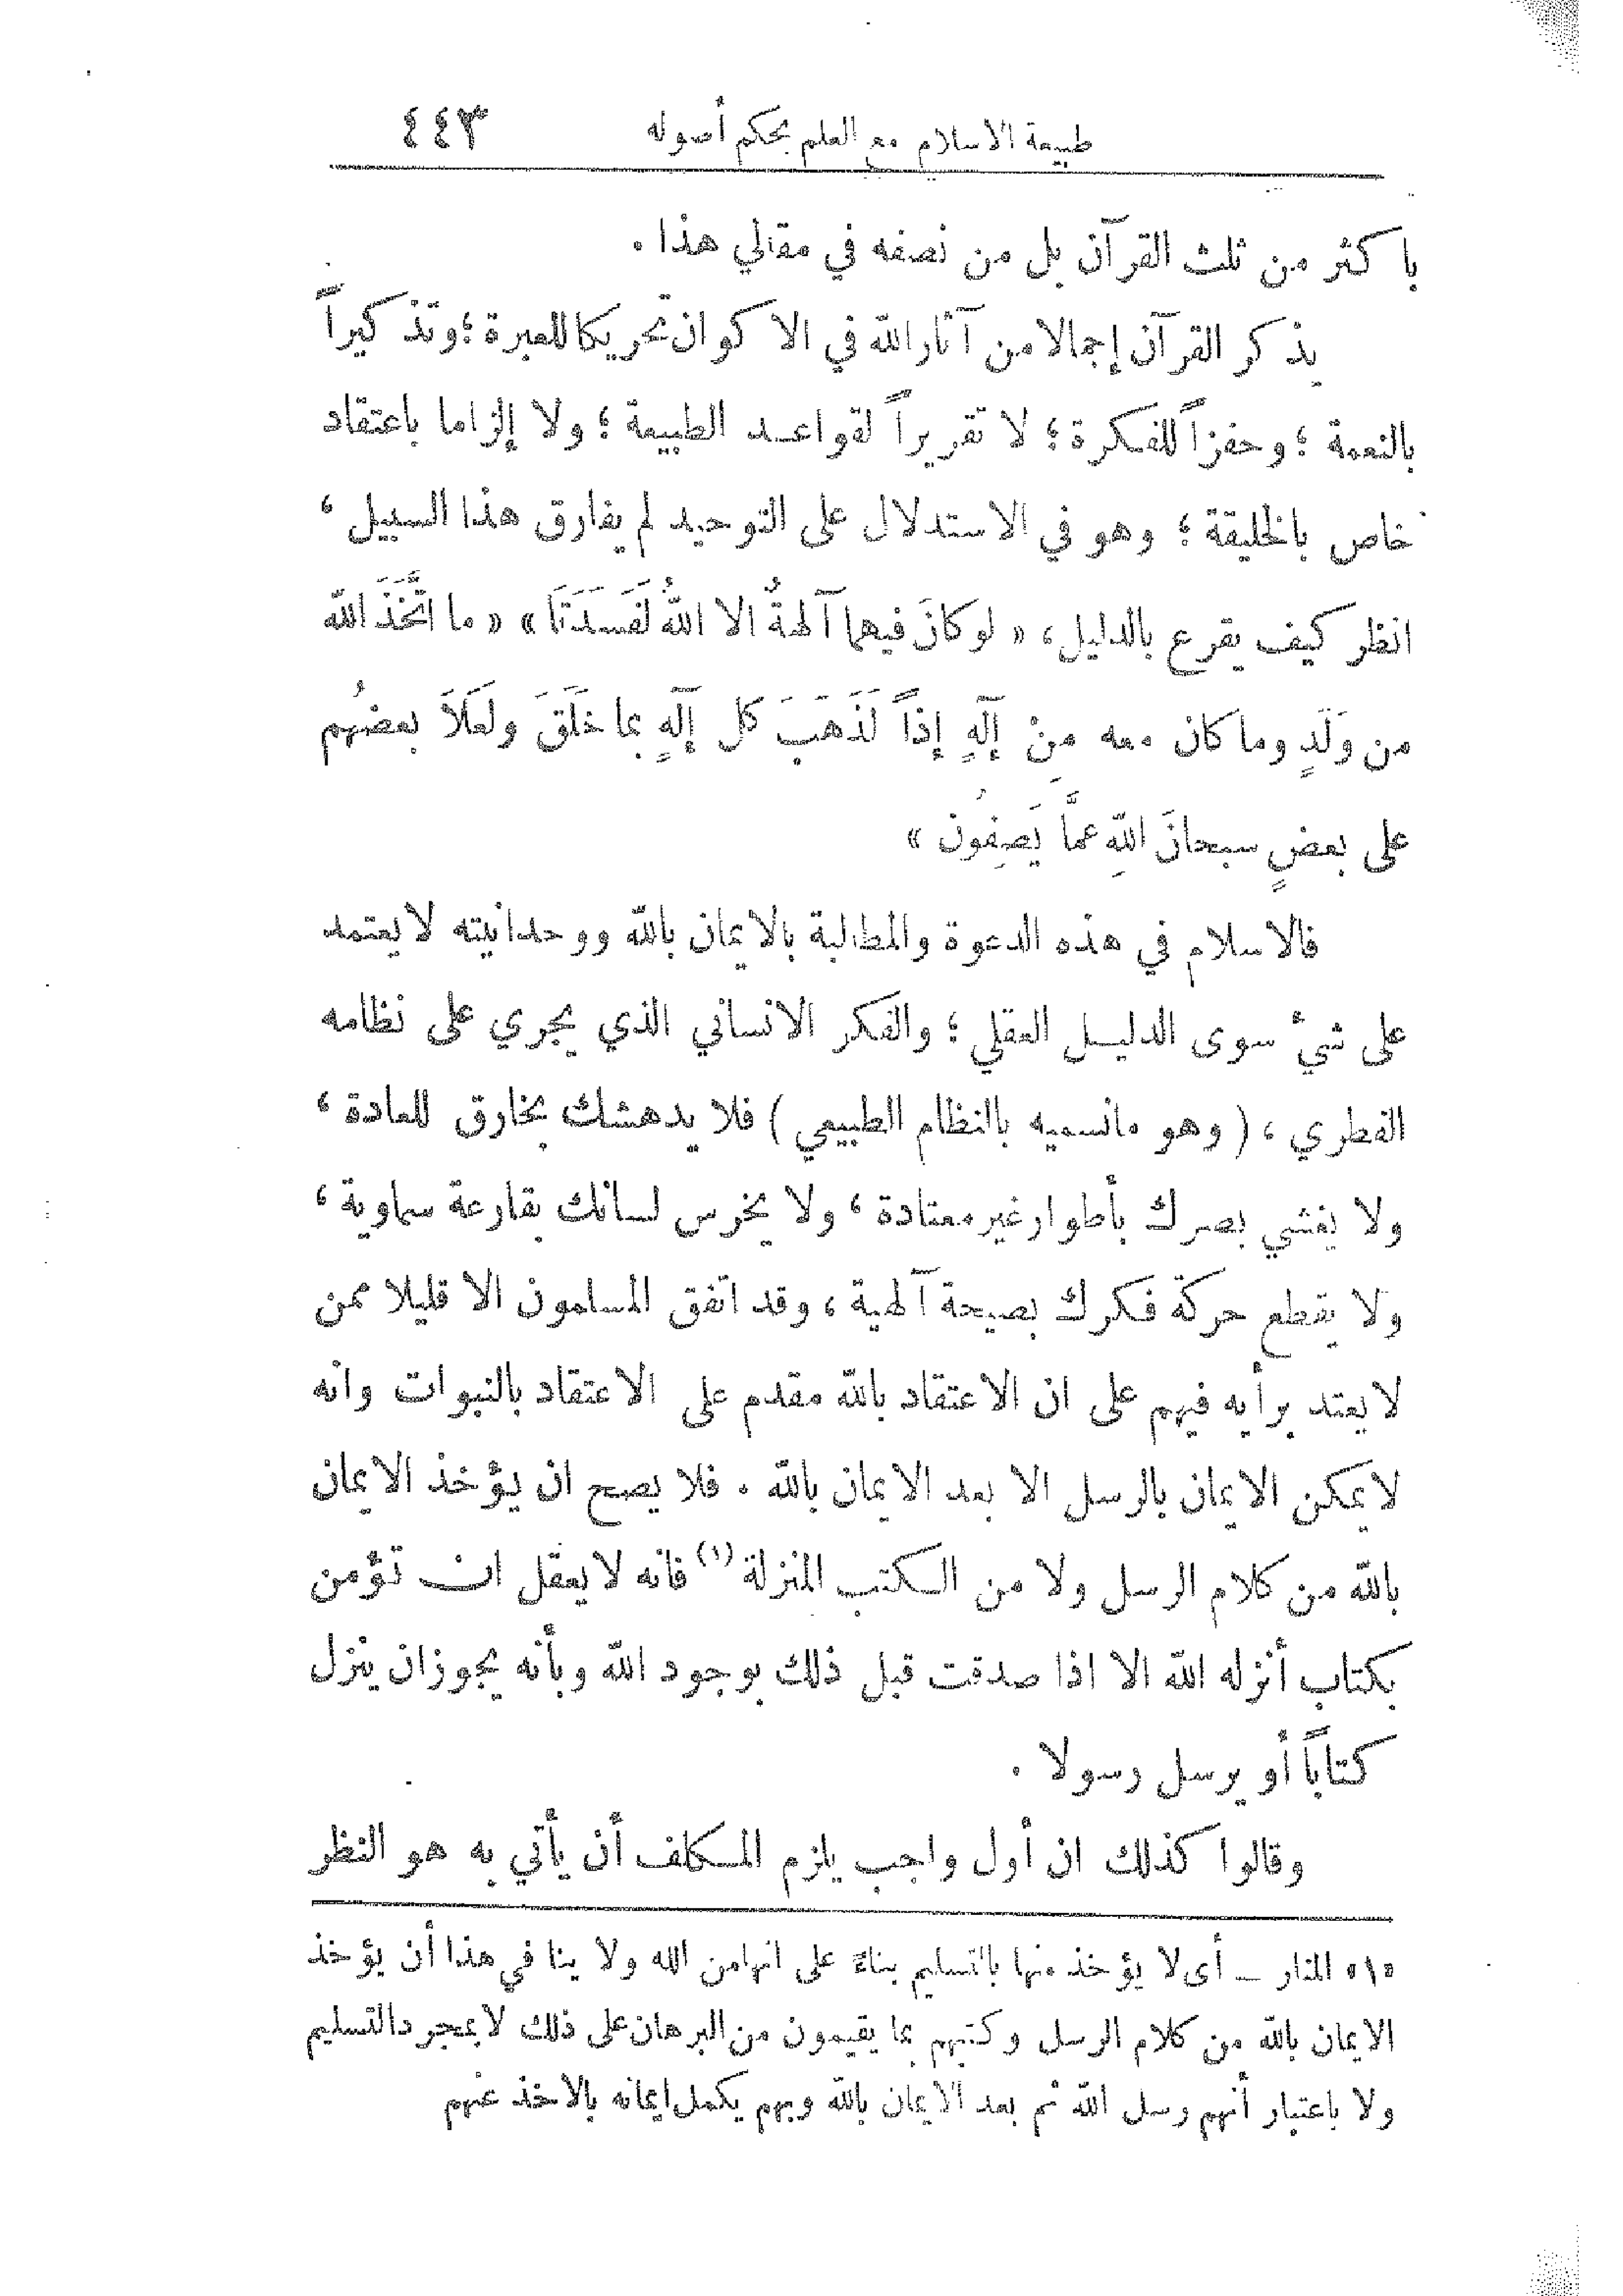 طبيعة الاسلام مع العلم بحكم أصوله ٤٤٣
باكثر من ثلث القرآن بل من نصفه في مقالي هذا .
يذكر القرآن إجمالا من آثار الله في الاكوان تحريكا للعبرة ؛ وتذكيراً
بالنعمة ؛ وحفزاً للفكرة ؛ لا تقريراً لقواعد الطبيعة ؛ ولا إلزاما باعتقاد
خاص بالخليقة ؛ وهو في الاستدلال على التوحيد لم يفارق هذا السبيل ،
انظر كيف يقرع بالدليل ، « لو كانَ فيهما آلهةٌ الا اللهُ لَفَسَدَتَا » « ما اتَّخَذَ الله
من وَلَدٍ وما كان معه مِنْ إلَهٍ إذاً لَذَهَبَ كل إلَهٍ بما خَلَقَ ولَعَلاَ بعضُهم
على بعضٍ سبحانَ اللهِ عمَّا يَصِفُون »
فالاسلام في هذه الدعوة والمطالبة بالايمان بالله ووحدانيته لا يعتمد
على شيءٍ سوى الدليل العقلي ؛ والفكر الانساني الذي يجري على نظامه
الفطري ، ( وهو مانسميه بالنظام الطبيعي ) فلا يدهشك بخارق للعادة ،
ولا يغشي بصرك بأطوار غير معتادة ، ولا يخرس لسانك بقارعة سماوية ،
ولا يقطع حركة فكرك بصيحة آلهية ، وقد اتفق المسلمون الا قليلا ممن
لا يعتد برأيه فيهم على ان الاعتقاد بالله مقدم على الاعتقاد بالنبوات وانه
لا يمكن الايمان بالرسل الا بعد الايمان بالله . فلا يصح ان يؤخذ الايمان
بالله من كلام الرسل ولا من الكتب المنزلة (١) فانه لا يعقل ان تؤمن
بكتاب أنزله الله الا اذا صدقت قبل ذلك بوجود الله وبأنه يجوز ان ينزل
كتاباً أو يرسل رسولا .
وقالوا كذلك ان أول واجب يلزم المكلف أن يأتي به هو النظر
«١» المنار ـ أى لا يؤخذ منها بالتسليم بناءً على انها من الله ولا ينافي هذا أن يؤخذ
الايمان بالله من كلام الرسل وكتبهم بما يقيمون من البرهان على ذلك لا بمجرد التسليم
ولا باعتبار أنهم رسل الله ثم بعد الايمان بالله وبهم يكمل ايمانه بالاخذ عنهم